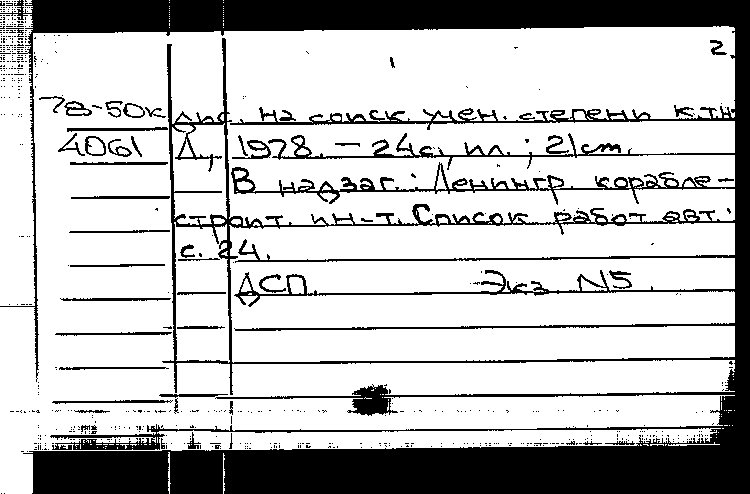 2.
78-50к дис. на соиск. учен. степени к.т.н
4061 Л., 1978. — 24с., ил.; 21см.
В надзаг.: Ленингр. корабле-
строит. ин-т. Список работ авт.:
с. 24.
ДСП. Экз. N5.